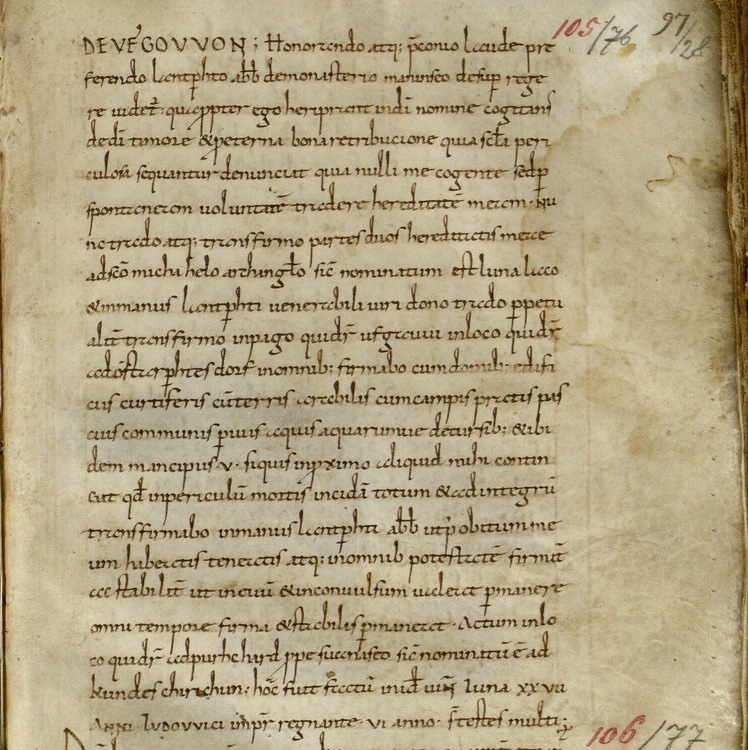 DE UFGOUUON; Honorando atq; p̄conio laude pre
ferendo lantp̄hto abb̄ demonasterio maninseo desup̄ rege
re uidet᷑: quap̄pter ego heriprant indī nomine cogitans
dedī timore & p̄eterna bona retribucione quia scl̄a peri
culosa sequantur denunciat quia nulli me cogente sedp̄
spontaneam uoluntatē tradere hereditatē meam. Nu
nc trado atq; transfirmo partes duos hereditatis meae
adscō michahelo archangl̄o sic̄ nominatum est lunalaco
& inmanus lantp̄hti uenerabili uiri dono trado p̄petu
alit᷑ transfirmo inpago quidr̄ ufgauui inloco quidr̄
adōstarp̄htesdorf inomnib; firmabo cumdomib; edifi
ciis curtiferis cūterris arabilis cumcampis pratis pas
cuis communis p̄uiis aquis aquarumue decursib; & ibi
dem mancipiis .v. siquis inp̄ximo aliquid mihi contin
gat qd̄ inpericulū mortis incidā totum & adintegrū
transfirmabo inmanus lantp̄hti abb̄ utp̄ obitum me
um habeatis teneatis atq; inomnib potestatē firmit᷑
ac stabilit᷑ ut ineuū & inconuulsum ualeat p̄manere
omni tempore firma & stabilis p̄maneat. Actum inlo
co quidr̄ adpurhchard p̄pe succniseo sic̄ nominatū ē ad
kundeschirihun: hoc̄ fuit factū inid̄ luna xxvii
ANNI ludouuici inp̄r regnante vi anno. s̄ testes multi;
105/76 97/28
106/77